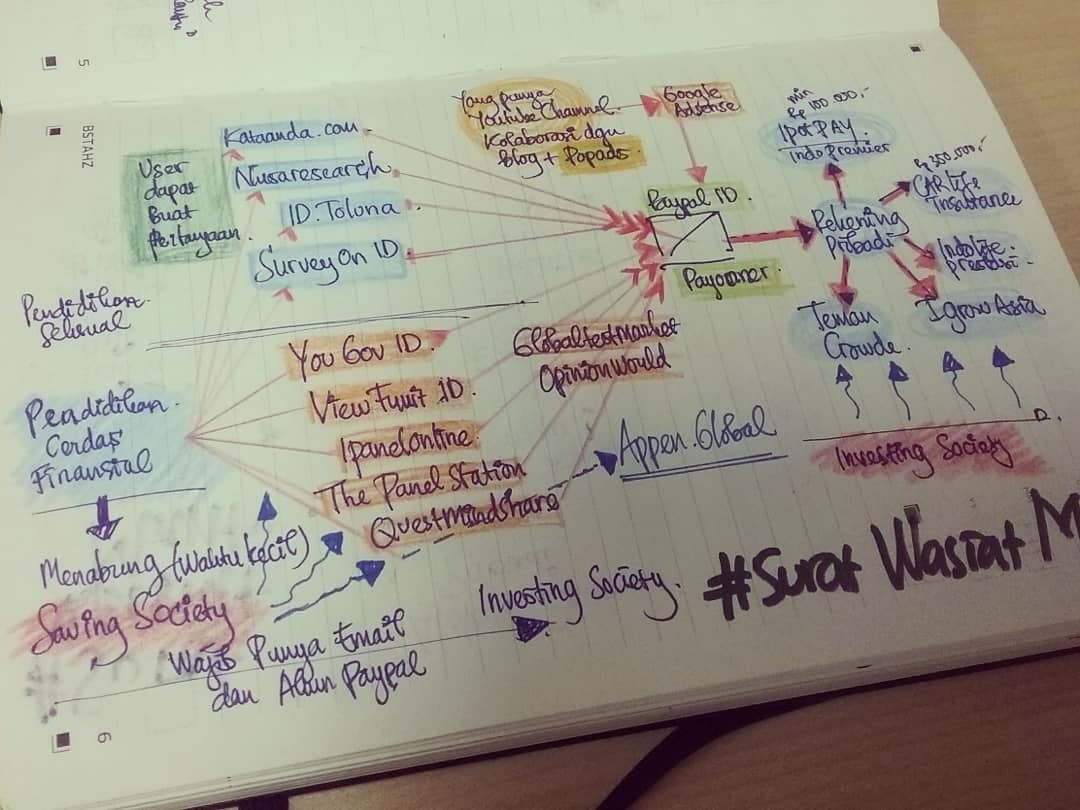 5
BSTAHZ
Kataanda.com
Nusaresearch
ID.Toluna
SurveyOn ID
User
dapat
Buat
Yang punya
Youtube Channel
Kolaborasi dgn
Blog + Popads
Google
Adsense
Paypal ID.
Payooner.
Rekening
Pribadi
min
Rp 100.000,-
IpotPAY.
IndoPremier
Rp 300.000,-
CAR Life
Insurance
Indolife
Igrow Asia
Teman
Crowde.
Investing Society
Pendidikan
Seksual
Pendidikan
Cerdas
Finansial
You Gov ID.
View Fruit ID.
Ipanelonline
The Panel Station
Questmindshare
Globaltestmarket
OpinionWorld
Appen.Global
Menabung (Waktu kecil)
Saving Society
Wajib Punya Email
dan Akun Paypal
Investing Society.
#Surat Wasiat M
6